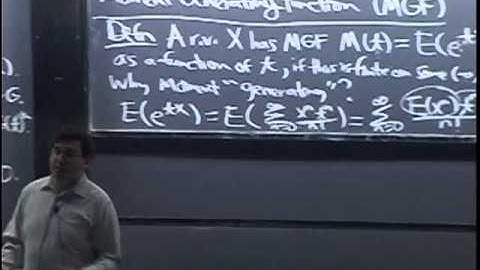 Moment Generating Function (MGF)
Defn A r.v. X has MGF M(t) = E(e^tx
as a function of t, if this is finite on some (-a,
Why moment "generating"?
E(e^tx) = E(∑_{n=0}^∞ x^n t^n / n!) = ∑_{n=0}^∞ E(x^n) t^n / n!